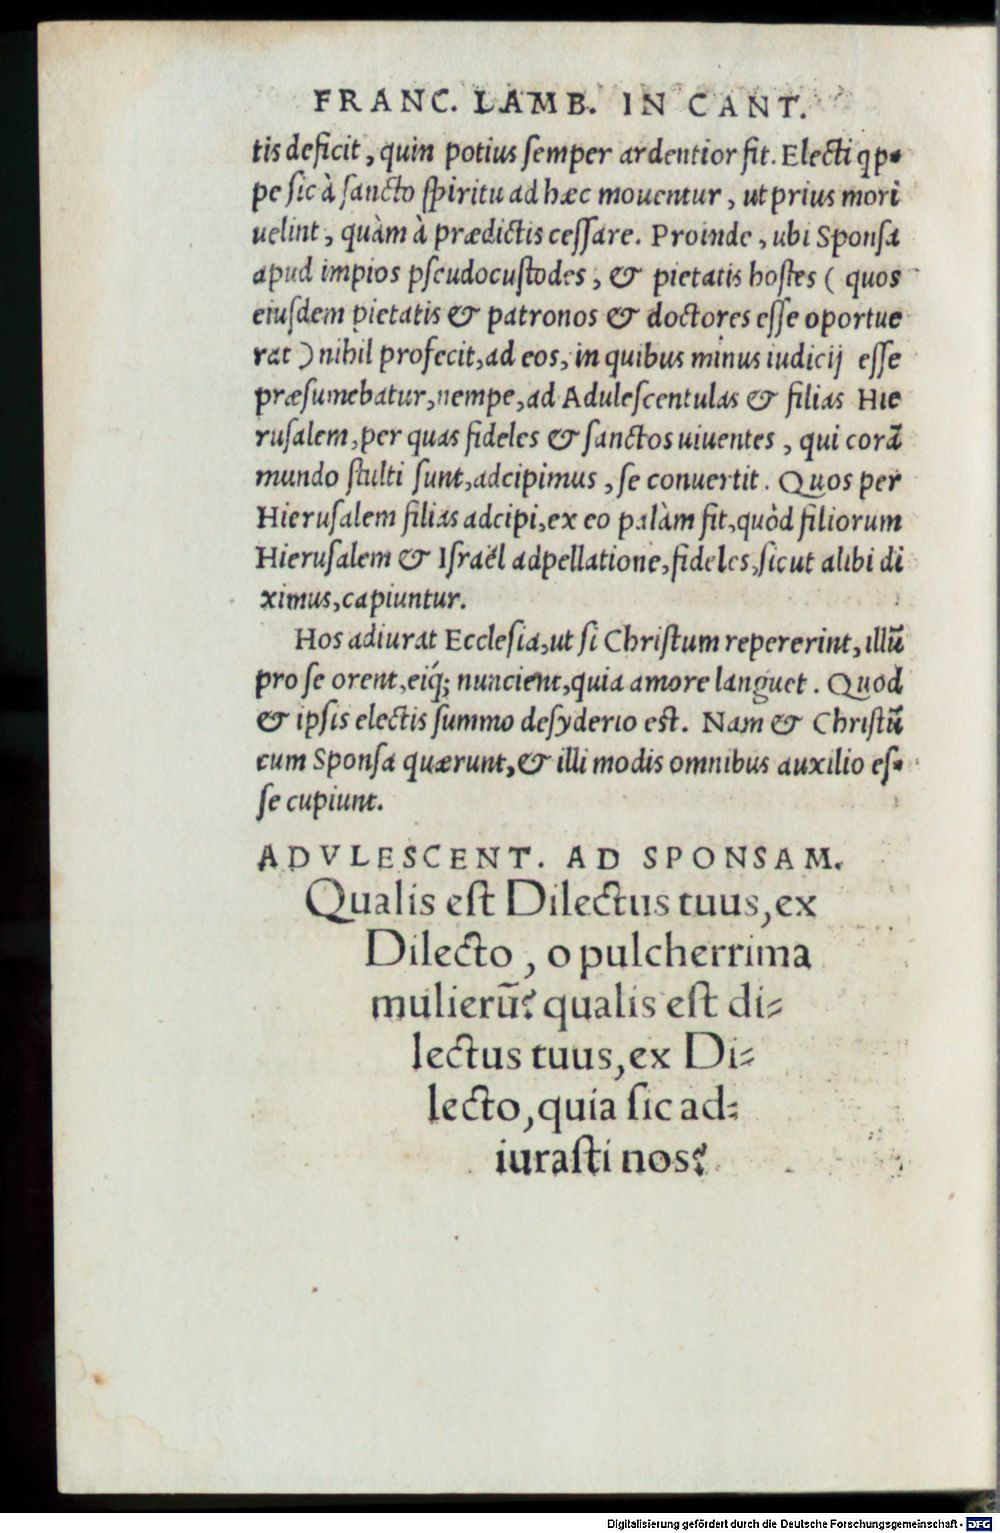 FRANC. LAMB. IN CANT.
tis deficit, quin potius ſemper ardentior fit. Electi qp-
pe ſic à ſancto ſpiritu ad hæc mouentur, ut prius mori
uelint, quàm à prædictis ceſſare. Proinde, ubi Sponſa
apud impios pſeudocuſtodes, & pietatis hoſtes ( quos
eiuſdem pietatis & patronos & doctores eſſe oportue
rat ) nihil profecit, ad eos, in quibus minus iudicij eſſe
præſumebatur, nempe, ad Aduleſcentulas & filias Hie
ruſalem, per quas fideles & ſanctos uiuentes, qui corã
mundo ſtulti ſunt, adcipimus, ſe conuertit. Quos per
Hieruſalem filias adcipi, ex eo palàm fit, quòd filiorum
Hieruſalem & Iſraël adpellatione, fideles, ſicut alibi di
ximus, capiuntur.
Hos adiurat Eccleſia, ut ſi Chriſtum repererint, illũ
pro ſe orent, eiq́; nuncient, quia amore languet. Quod
& ipſis electis ſummo deſyderio eſt. Nam & Chriſtũ
cum Sponſa quærunt, & illi modis omnibus auxilio eſ-
ſe cupiunt.
ADVLESCENT. AD SPONSAM.
Qualis eſt Dilectus tuus, ex
Dilecto, o pulcherrima
mulierũ? qualis eſt di-
lectus tuus, ex Di-
lecto, quia ſic ad-
iuraſti nos?
Digitalisierung gefördert durch die Deutsche Forschungsgemeinschaft - DFG